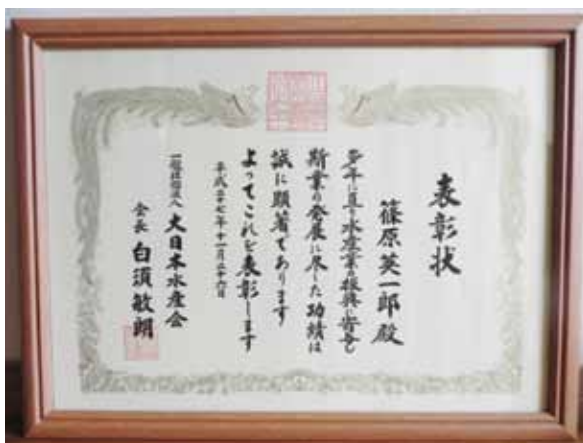 表彰状
篠原英一郎殿
多年に亘り水産業の振興に寄与し
斯業の発展に尽した功績は
誠に顕著であります
よってこれを表彰します
平成二十七年十一月二十六日
一般社団法人 大日本水産会
会長 白須敏朗